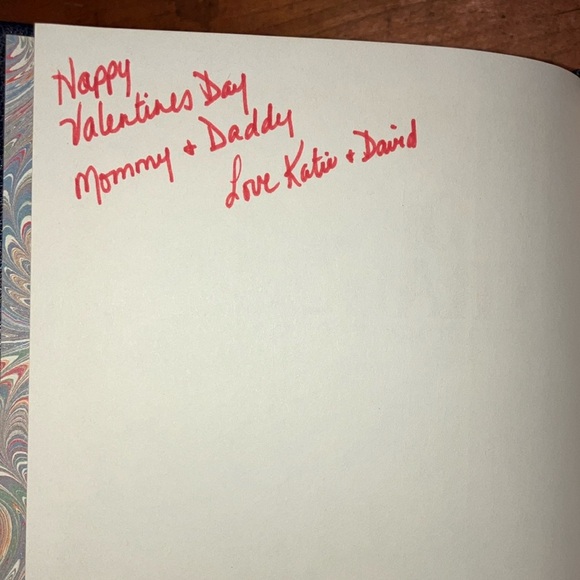 Happy
Valentines Day
Mommy + Daddy
Love Katie + David